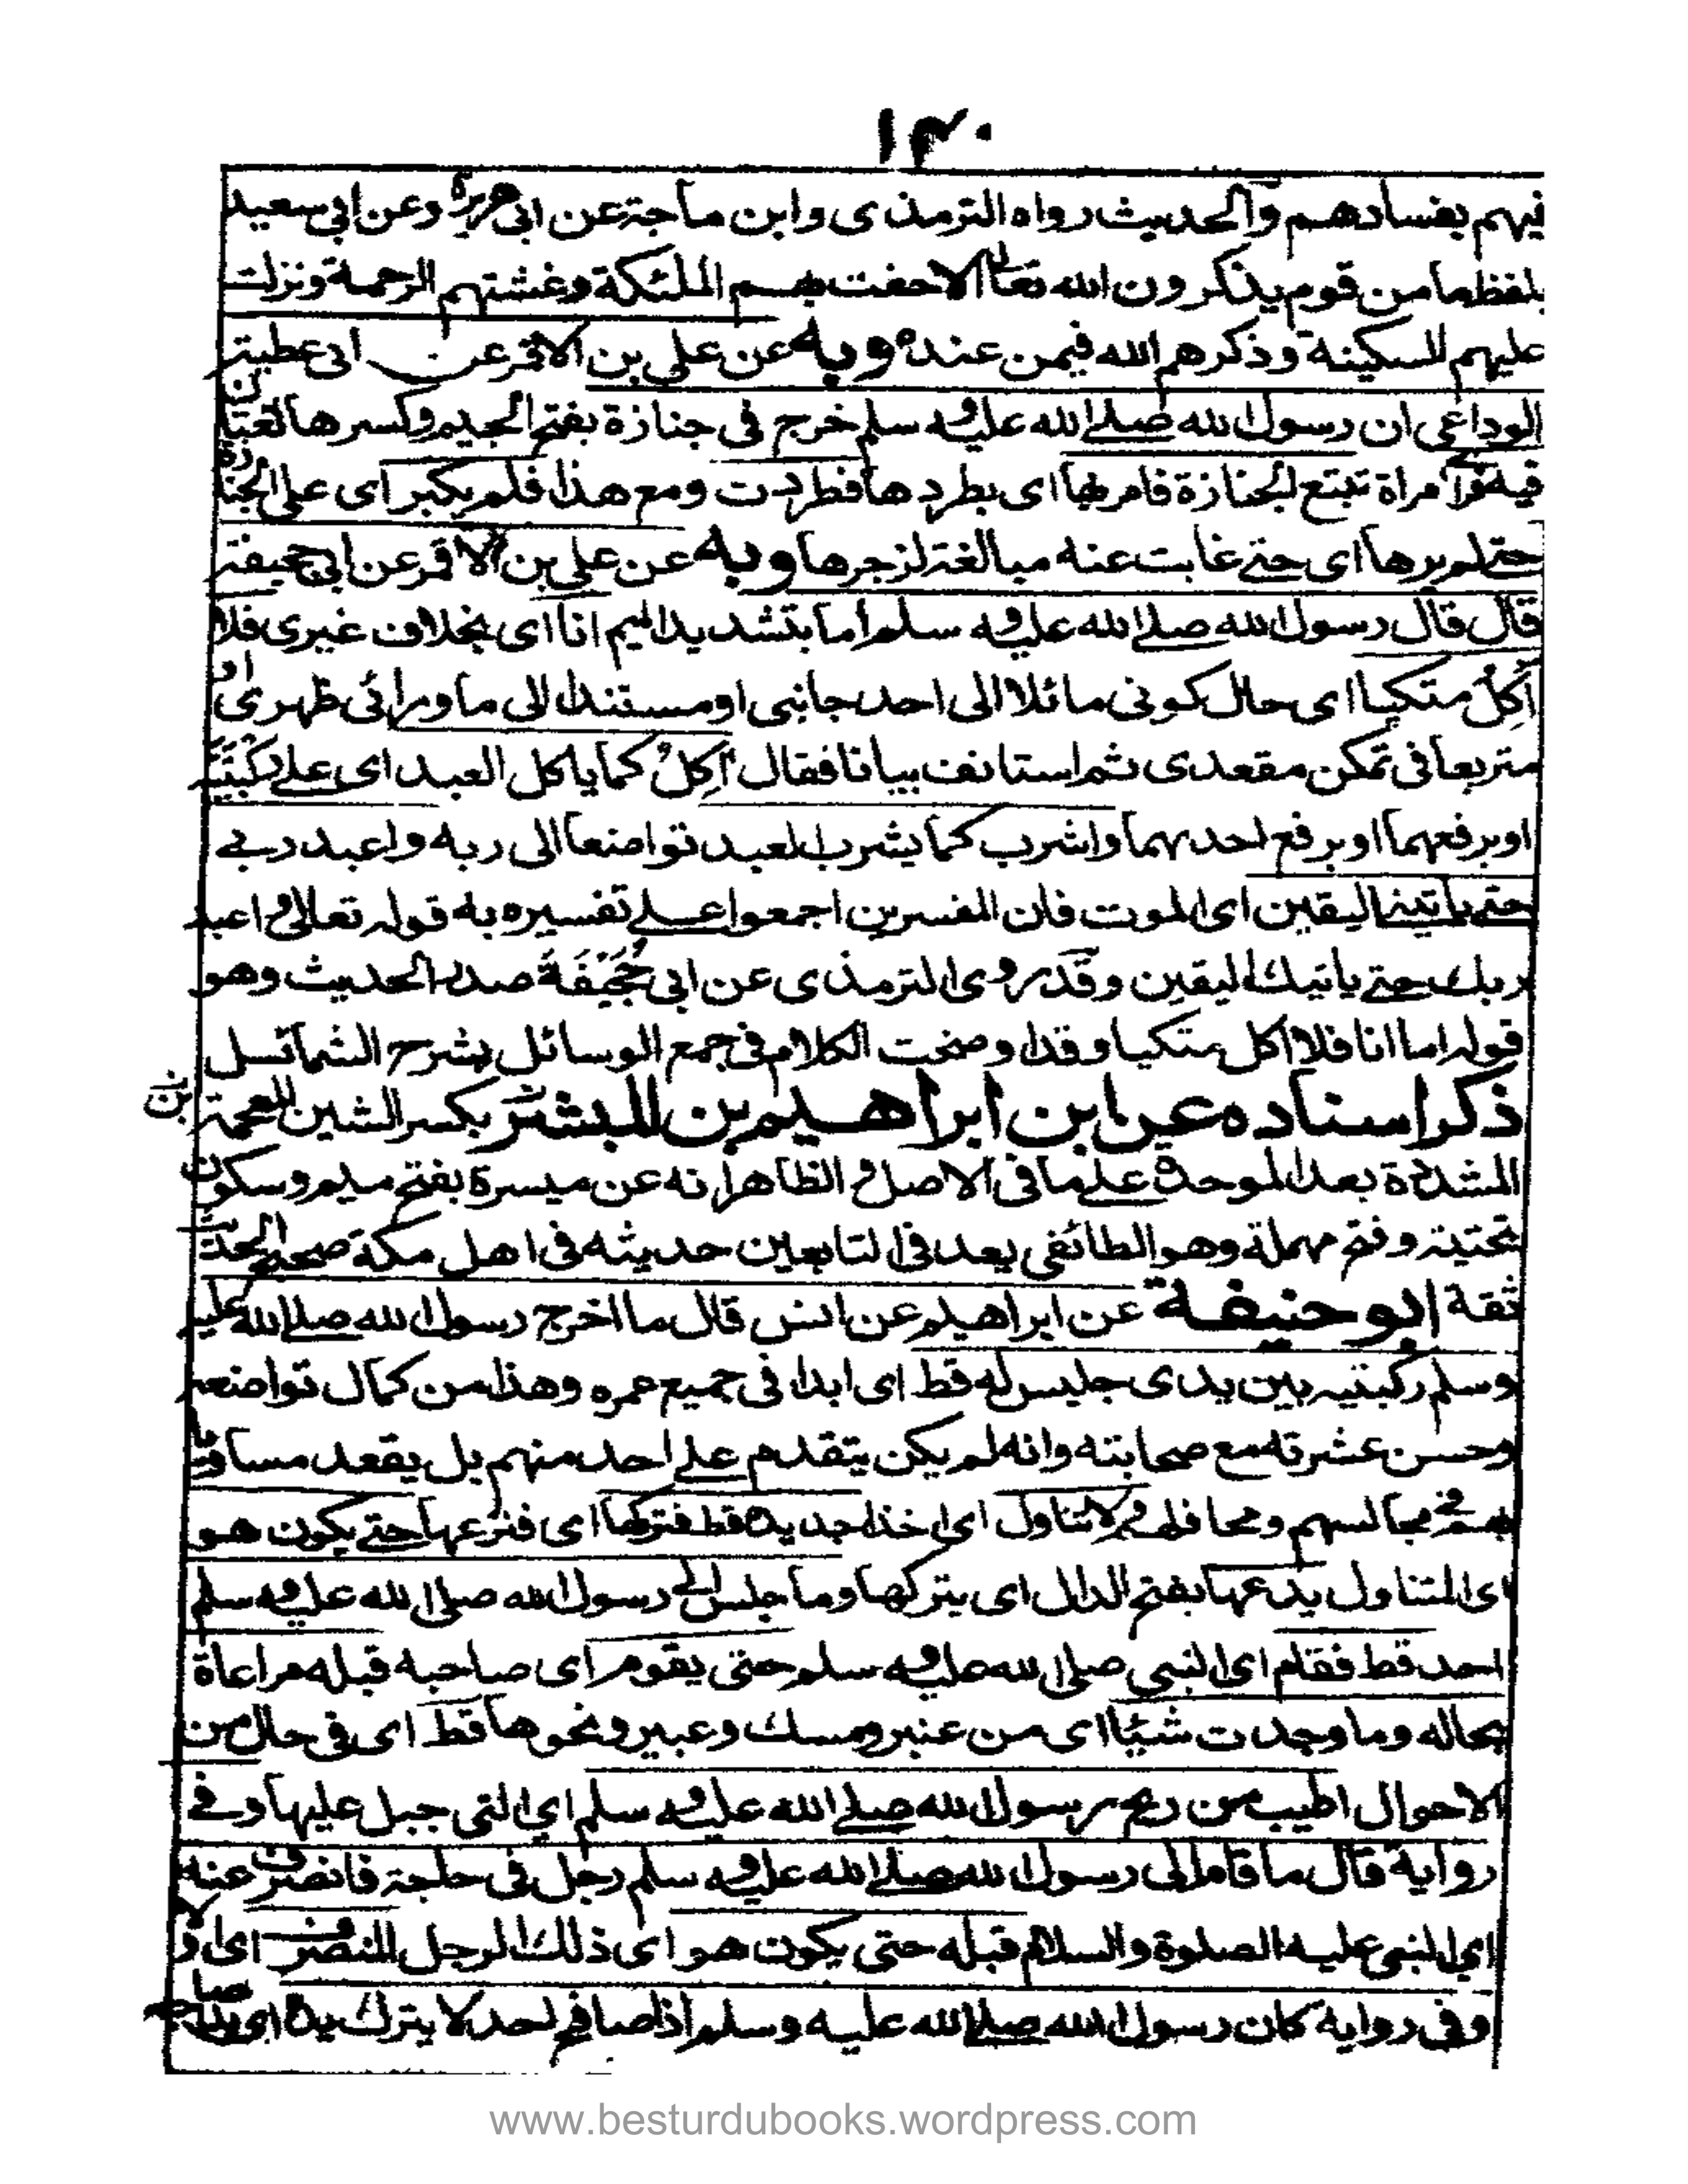 ١٣٠
فيهم بفسادهم والحديث رواه الترمذى وابن ماجة عن ابى هريرة وعن ابى سعيد
بلفظ ما من قوم يذكرون الله تعالى الا حفت بهم الملئكة وغشتهم الرحمة ونزلت
عليهم السكينة وذكرهم الله فيمن عنده وبه عن على بن الاقمر عن ابى عطية
الوداعى ان رسول الله صلے الله عليه وسلم خرج فى جنازة بفتح الجيم وكسرها لغتان
فيه فرأ امراة تتبع الجنازة فامر بها اى بطردها فطردت ومع هذا فلم يكبر اى على الجنازة
حتے لم يرها اى حتے غابت عنه مبالغة لزجرها وبه عن على بن الاقمر عن ابى جحيفة
قال قال رسول الله صلے الله عليه وسلم اما بتشديد الميم انا اى بخلاف غيرى فلا
آكِلُ متكيا اى حال كونى مائلا الى احد جانبى او مستندا الى ما ورائى ظهرى او
متربعا فى تمكن مقعدى ثم استانف بيانا فقال آكِلُ كما ياكل العبد اى علے ركبتيه
او برفعهما او برفع احدهما واشرب كما يشرب العبد تواضعا الى ربه واعبد ربے
حتے ياتينى اليقين اى الموت فان المفسرين اجمعوا علے تفسيره به قوله تعالى واعبد
ربك حتے ياتيك اليقين وقد روى الترمذى عن ابى جُحَيْفَةَ صدر الحديث وهو
قوله اما انا فلا اكل متكيا وقد اوضحت الكلام فى جمع الوسائل بشرح الشمائل
ذكر اسناده عن ابن ابراهيم بن المبشر بكسر الشين المعجمة بن
المشددة بعد الموحدة علے ما فى الاصل والظاهر انه عن ميسرة بفتح ميم وسكون
تحتية وفتح مهملة وهو الطائفى يعد فى التابعين حديثه فى اهل مكة صحيح الحديث
ثقة ابو حنيفة عن ابراهيم عن انس قال ما اخرج رسول الله صلے الله عليه
وسلم ركبتيه بين يدى جليس له قط اى ابدا فى جميع عمره وهذا من كمال تواضعه
وحسن عشرته مع صحابته وانه لم يكن يتقدم علے احد منهم بل يقعد مساويا
بهم فے مجالسهم ومحافلهم ولا تناول اى اخذ احد يده قط فتركها اى فنزعها حتے يكون هو
اى المتناول يدعها بفتح الدال اى يتركها وما جلس الى رسول الله صلى الله عليه وسلم
احد قط فقام اى النبى صلى الله عليه وسلم حتى يقوم اى صاحبه قبله مراعاة
بحاله وما وجدت شيئا اى من عنبر ومسك وعبير ونحوها قط اى فى حال من
الاحوال اطيب من ريح رسول الله صلے الله عليه وسلم اى التى جبل عليها وفے
رواية قال ما قام الى رسول الله صلے الله عليه وسلم رجل فى حاجة فانصرف عنه
اى النبى عليه الصلوة والسلام قبله حتى يكون هو اى ذلك الرجل المنصرف اى اولا
وفى رواية كان رسول الله صلے الله عليه وسلم اذا صافح احدا لا يترك يده اى
www.besturdubooks.wordpress.com